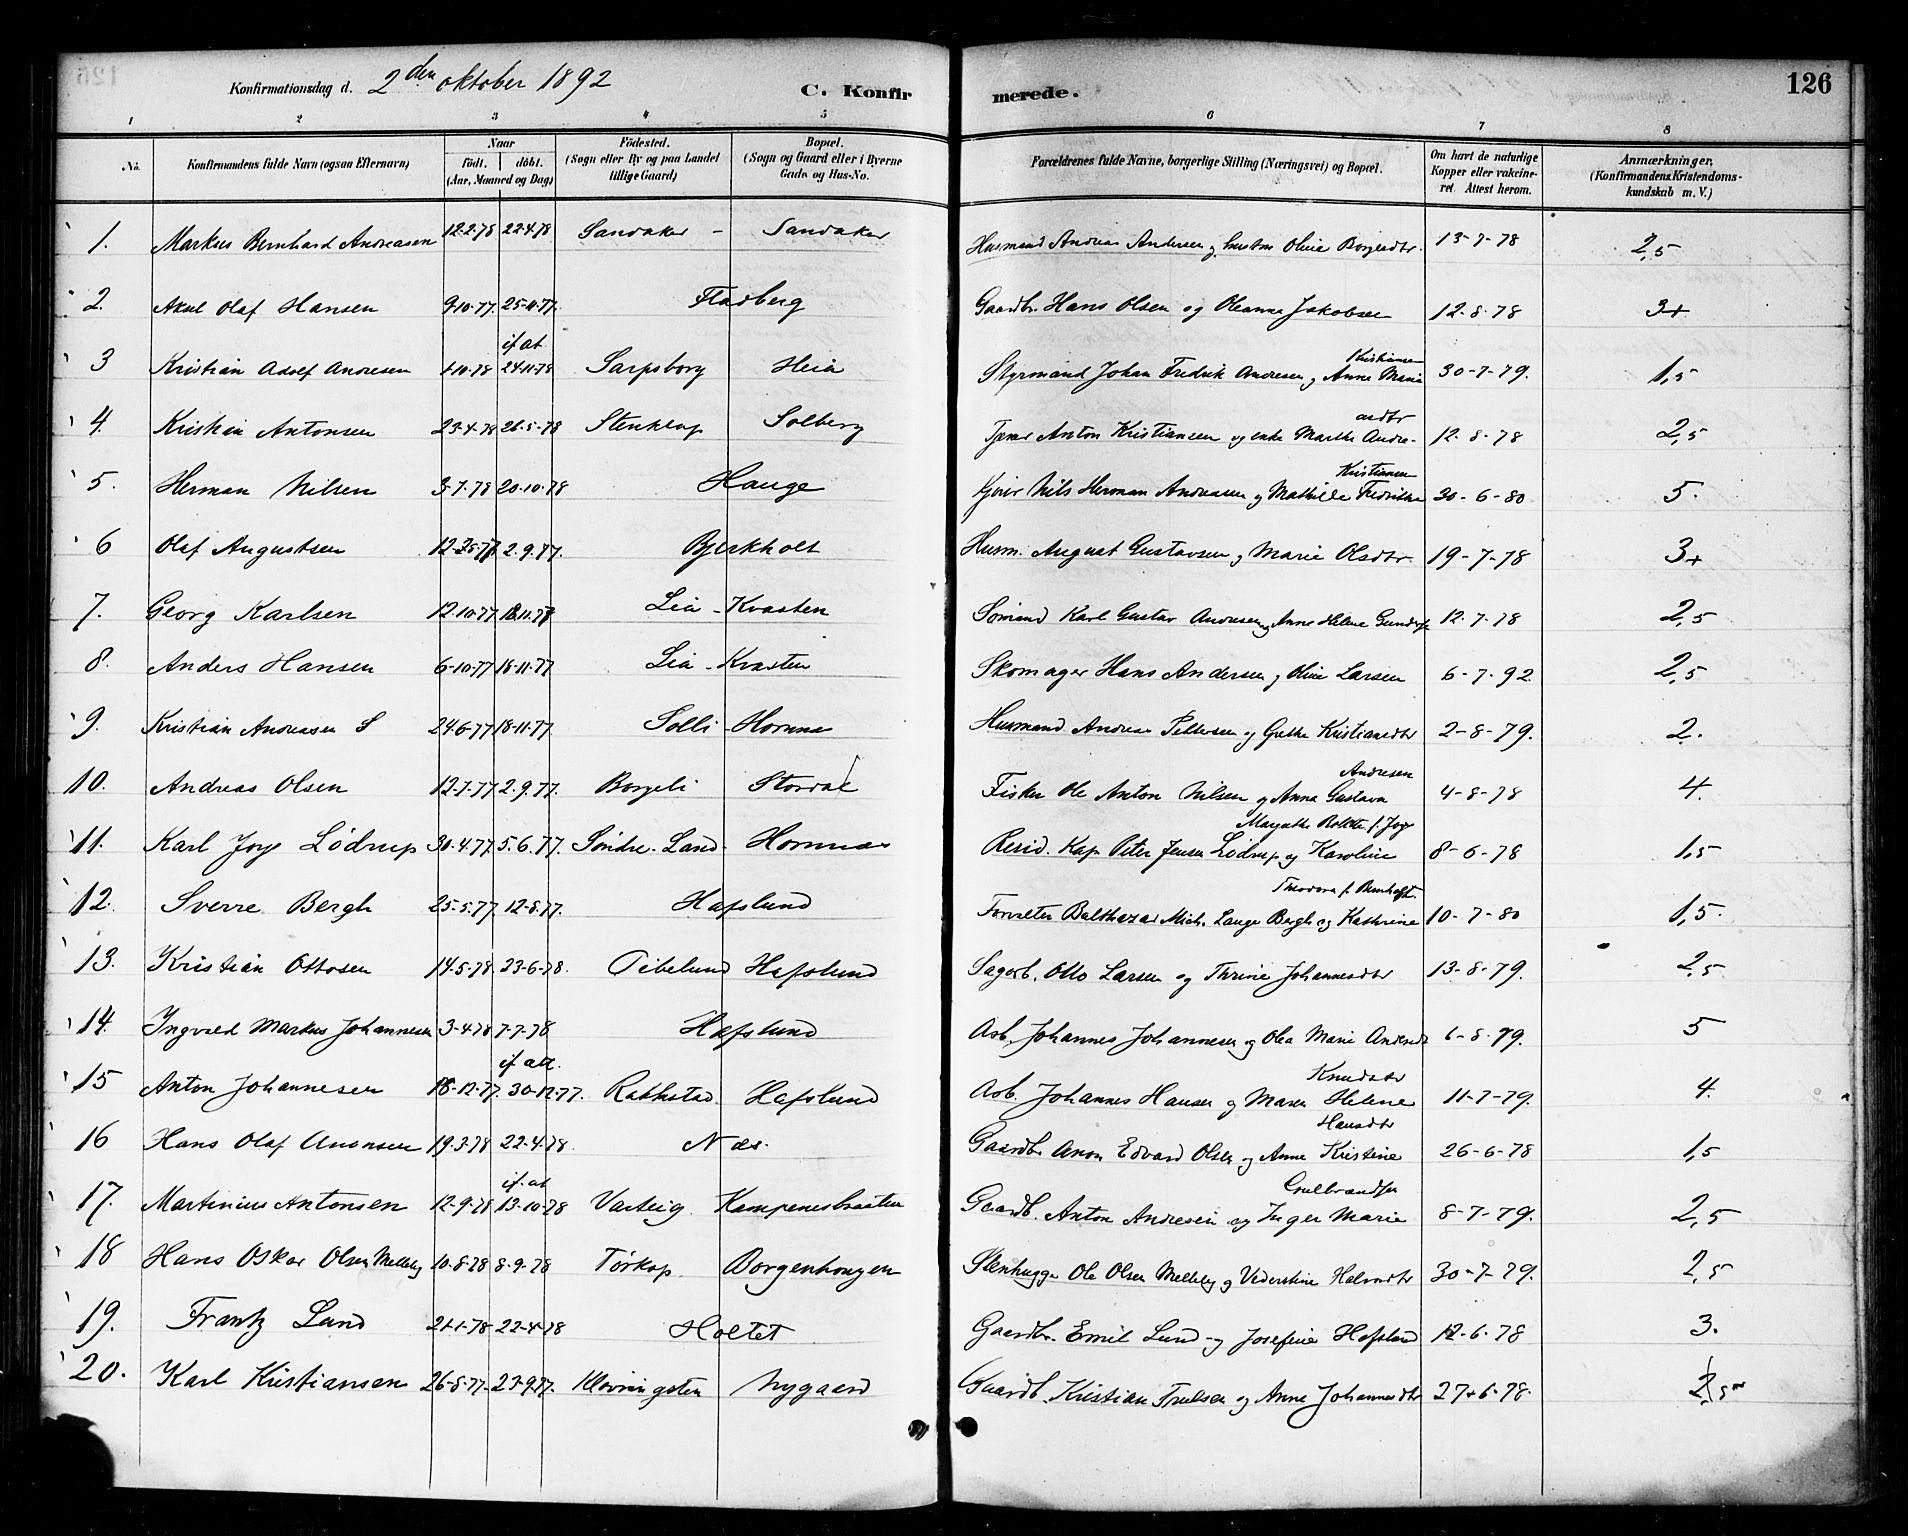 Konfirmationsdag d. 2den oktober 1892 C. Konfir merede. 126
1 2 3 4 5 6 7 8
No. Konfirmandens fulde Navn (ogsaa Efternavn) Naar födt. döbt. (Aar, Maaned og Dag) Födested. (Sogn eller By og paa Landet tillige Gaard) Bopæl. (Sogn og Gaard eller i Byerne Gade og Hus-No. Forældrenes fulde Navne, borgerlige Stilling (Næringsvei) og Bopæl. Om havt de naturlige Kopper eller vakcineret. Attest herom. Anmærkninger, (Konfirmandens Kristendomskundskab m. V.)
1. Markus Bernhard Andreasen 12.2.78 22.4.78 Sandaker - Sandaker Husmand Andreas Andersen og hustru Oline Borgersdtr. 13-7-78 2,5
2. Aksel Olaf Hansen 9-10-77. 25-11-77. Fladberg Gaardbr. Hans Olsen og Oleanna Jakobsen 12-8-78 3+
3 Kristian Adolf Andresen 1-10-78 if at 24-11-78 Sarpsborg Heia Styrmand Johan Fredrik Andresen og Anne Marie Kristiansen 30-7-79. 1,5
4. Kristian Antonsen 23-4-78 26-5-78 Stenkløp Solberg Anton Kristiansen og enke Marthe Andreasdtr 12-8-78 2,5
5. Herman Nilsen 3-7-78 20-10-78 Hauge Nils Herman Andreassen og Mathilde Fredrikke Kristiansen 30-6-80 5.
6 Olaf Augustsen 2.9.77. Bjerkholt Husm. August Gustavsen og Marie Olsdtr. 19-7-78 3+
7. Georg Karlsen 12-10-77 18.11.77 Lia - Kvasten Sømand Karl Gustav Andresen og Anne Helene 12-7-78 2,5
8. Anders Hansen 6-10-77 18-11-77 Lia - Kvasten Skomager Hans Andersen og Oline Larsen 6-7-92 2,5
9. Kristian Andreasen S 24-6-77 18-11-77 Solli - Hornnes Husmand Andreas Pettersen og Grethe Kristiansdtr 2-8-79. 2.
10. Andreas Olsen 12-7-77 2.9.77. Borgeli Stordal Fisker Ole Anton Nilsen og Anna Gustava Andresen 4-8-78 4.
11. Karl Joys Lødrup 30-4-77 5.6.77. Søndre-Land- Hornnes Resid. Kap. Peter Jensen Lødrup og Karoline Margrethe f. Joys 8-6-78 1,5
12. Sverre Bergh 25-5-77. 12-8-77. Hafslund Forvalter Balthazar Mich. Lange Bergh og Kathrine Theodora f. Bernhoft. 10-7-80 1,5.
13. Kristian Ottosen 14-5-78. 23-6-78. Hafslund Sagarb. Otto Larsen og Thrine Johannesdtr 13-8-79. 2,5
14. Ingvald Markus Johannesen 3-4-78 7-7-78 Hafslund Arb. Johannes Johannesen og Olea Marie 6-8-79. 5
15 Anton Johannesen 18-12-77. if att. 30-12-77. Rakkestad Hafslund Arb. Johannes Hansen og Maren Helene Knudsdtr 11-7-79. 4.
16 Hans Olaf Anonsen 19-3-78 22-4-78 Næs. Gaardbr. Anon Edvard Olsen og Anne Kristine Hansdtr 26-6-78 1,5
17. Martinius Antonsen 12-9-78 if. at 13-10-78 Varteig. Kampenesbraaten Gaardb. Anton Andresen og Inger Marie 8-7-79. 2,5
18 Hans Oskar Olsen Melleby 10-8-78 8-9-78 Tørkop Borgenhougen Stenhugger Ole Olsen Melleby og Halvorsdtr 30-7-79. 2,5
19. Frantz Lund 21-1-78 22-4-78 Holtet Gaardbr. Emil Lund og Josefine Hafslund 12-6-78 3.
20. Karl Kristiansen 26-8-77. 23-9-77. Kløvningsten Nygaard Gaardb. Kristian Trulsen og Anne Johannesdtr 27-6-78. 2,5